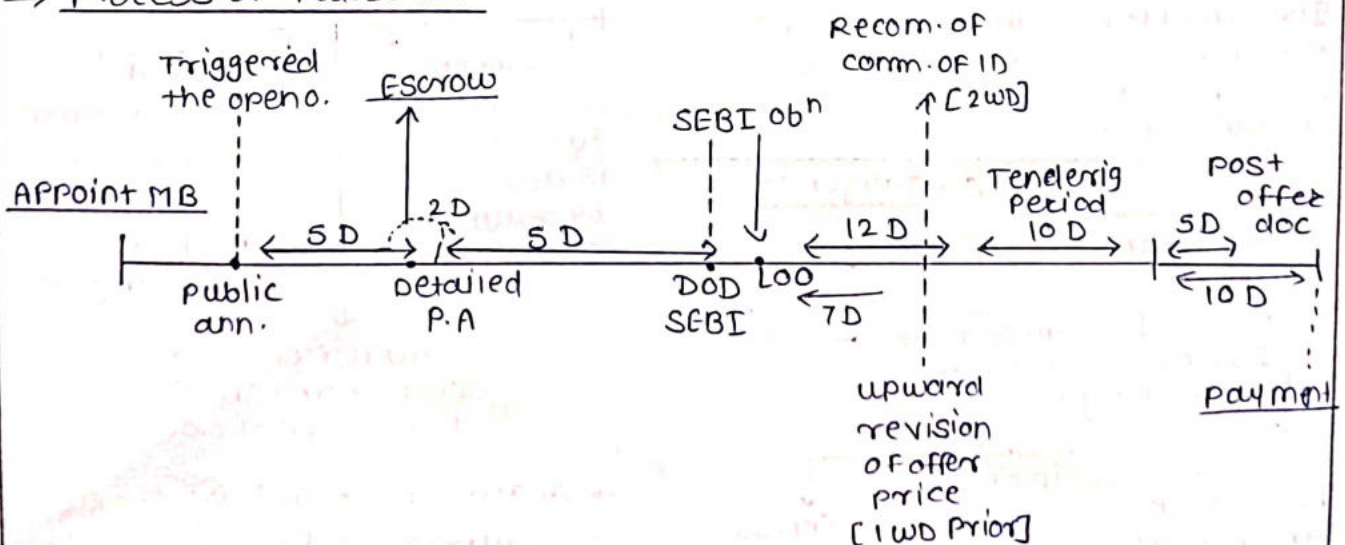 → Process of
Recom. of
comm. of ID
[2WD]
Triggered
the openo.
Escrow
SEBI obⁿ
Appoint MB
5D
2D
5D
12D
Tenderig
Period
10D
5D
post
offer
doc
10D
public
ann.
Detailed
P.A
DOD
SEBI
LOO
7D
upward
revision
of offer
price
[1WD Prior]
payment